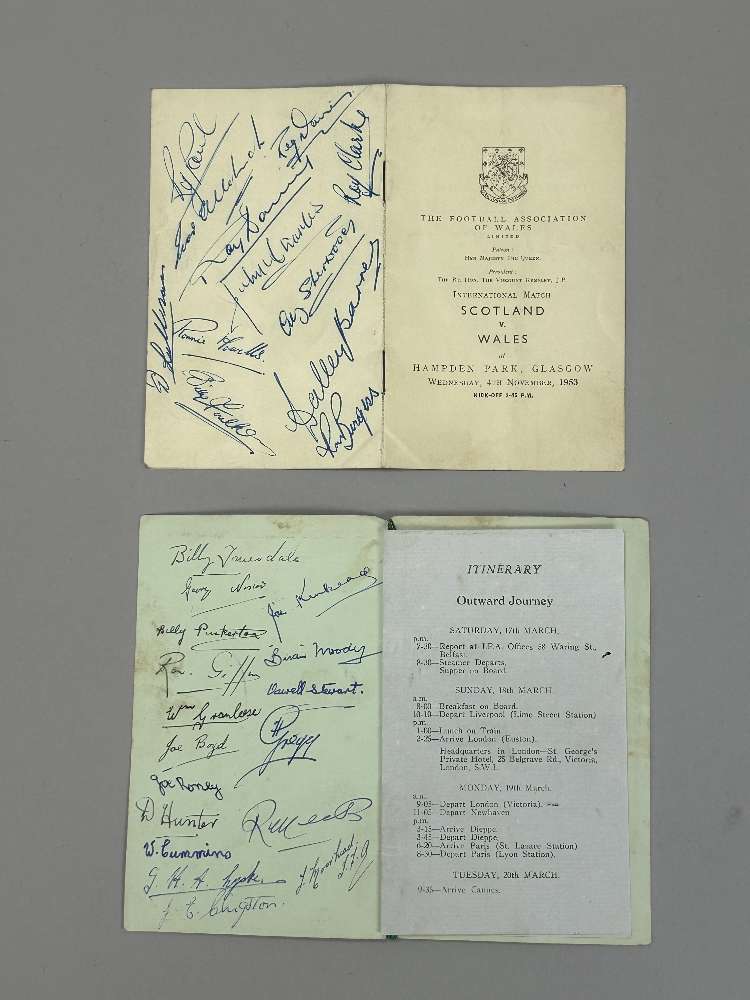 Ray Daniel
Reg Davies
Roy Clarke
John Charles
Alf Sherwood
Walley Barnes
Ron Burgess
THE FOOTBALL ASSOCIATION
OF WALES
LIMITED
Patron:
HER MAJESTY THE QUEEN.
President:
THE RT. HON. THE VISCOUNT KEMSLEY, J.P.
INTERNATIONAL MATCH
SCOTLAND
V.
WALES
at
HAMPDEN PARK, GLASGOW
WEDNESDAY, 4TH NOVEMBER, 1953
KICK-OFF 2-45 P.M.
Billy Truesdale
Joe Kinkead
Billy Pinkerton
Brian Moody
Ron. Giffin
Stewart.
Wm Granleese
H Gregg
Joe Boyd
Joe Roney
D Hunter
W. Cummins
ITINERARY
Outward Journey
SATURDAY, 17th MARCH.
p.m.
7-30—Report at I.F.A. Offices 58 Waring St.,
Belfast.
8-30—Steamer Departs.
Supper on Board.
SUNDAY, 18th MARCH.
a.m.
8-00—Breakfast on Board.
10-10—Depart Liverpool (Lime Street Station)
p.m.
1-00—Lunch on Train.
2-25—Arrive London (Euston).
Headquarters in London—St. George's
Private Hotel, 25 Belgrave Rd., Victoria,
London, S.W.1.
MONDAY, 19th March.
a.m.
9-05—Depart London (Victoria).
11-05—Depart Newhaven
p.m.
3-15—Arrive Dieppe.
3-45—Depart Dieppe.
6-20—Arrive Paris (St. Lazare Station)
8-30—Depart Paris (Lyon Station).
TUESDAY, 20th MARCH.
9-35—Arrive Cannes.